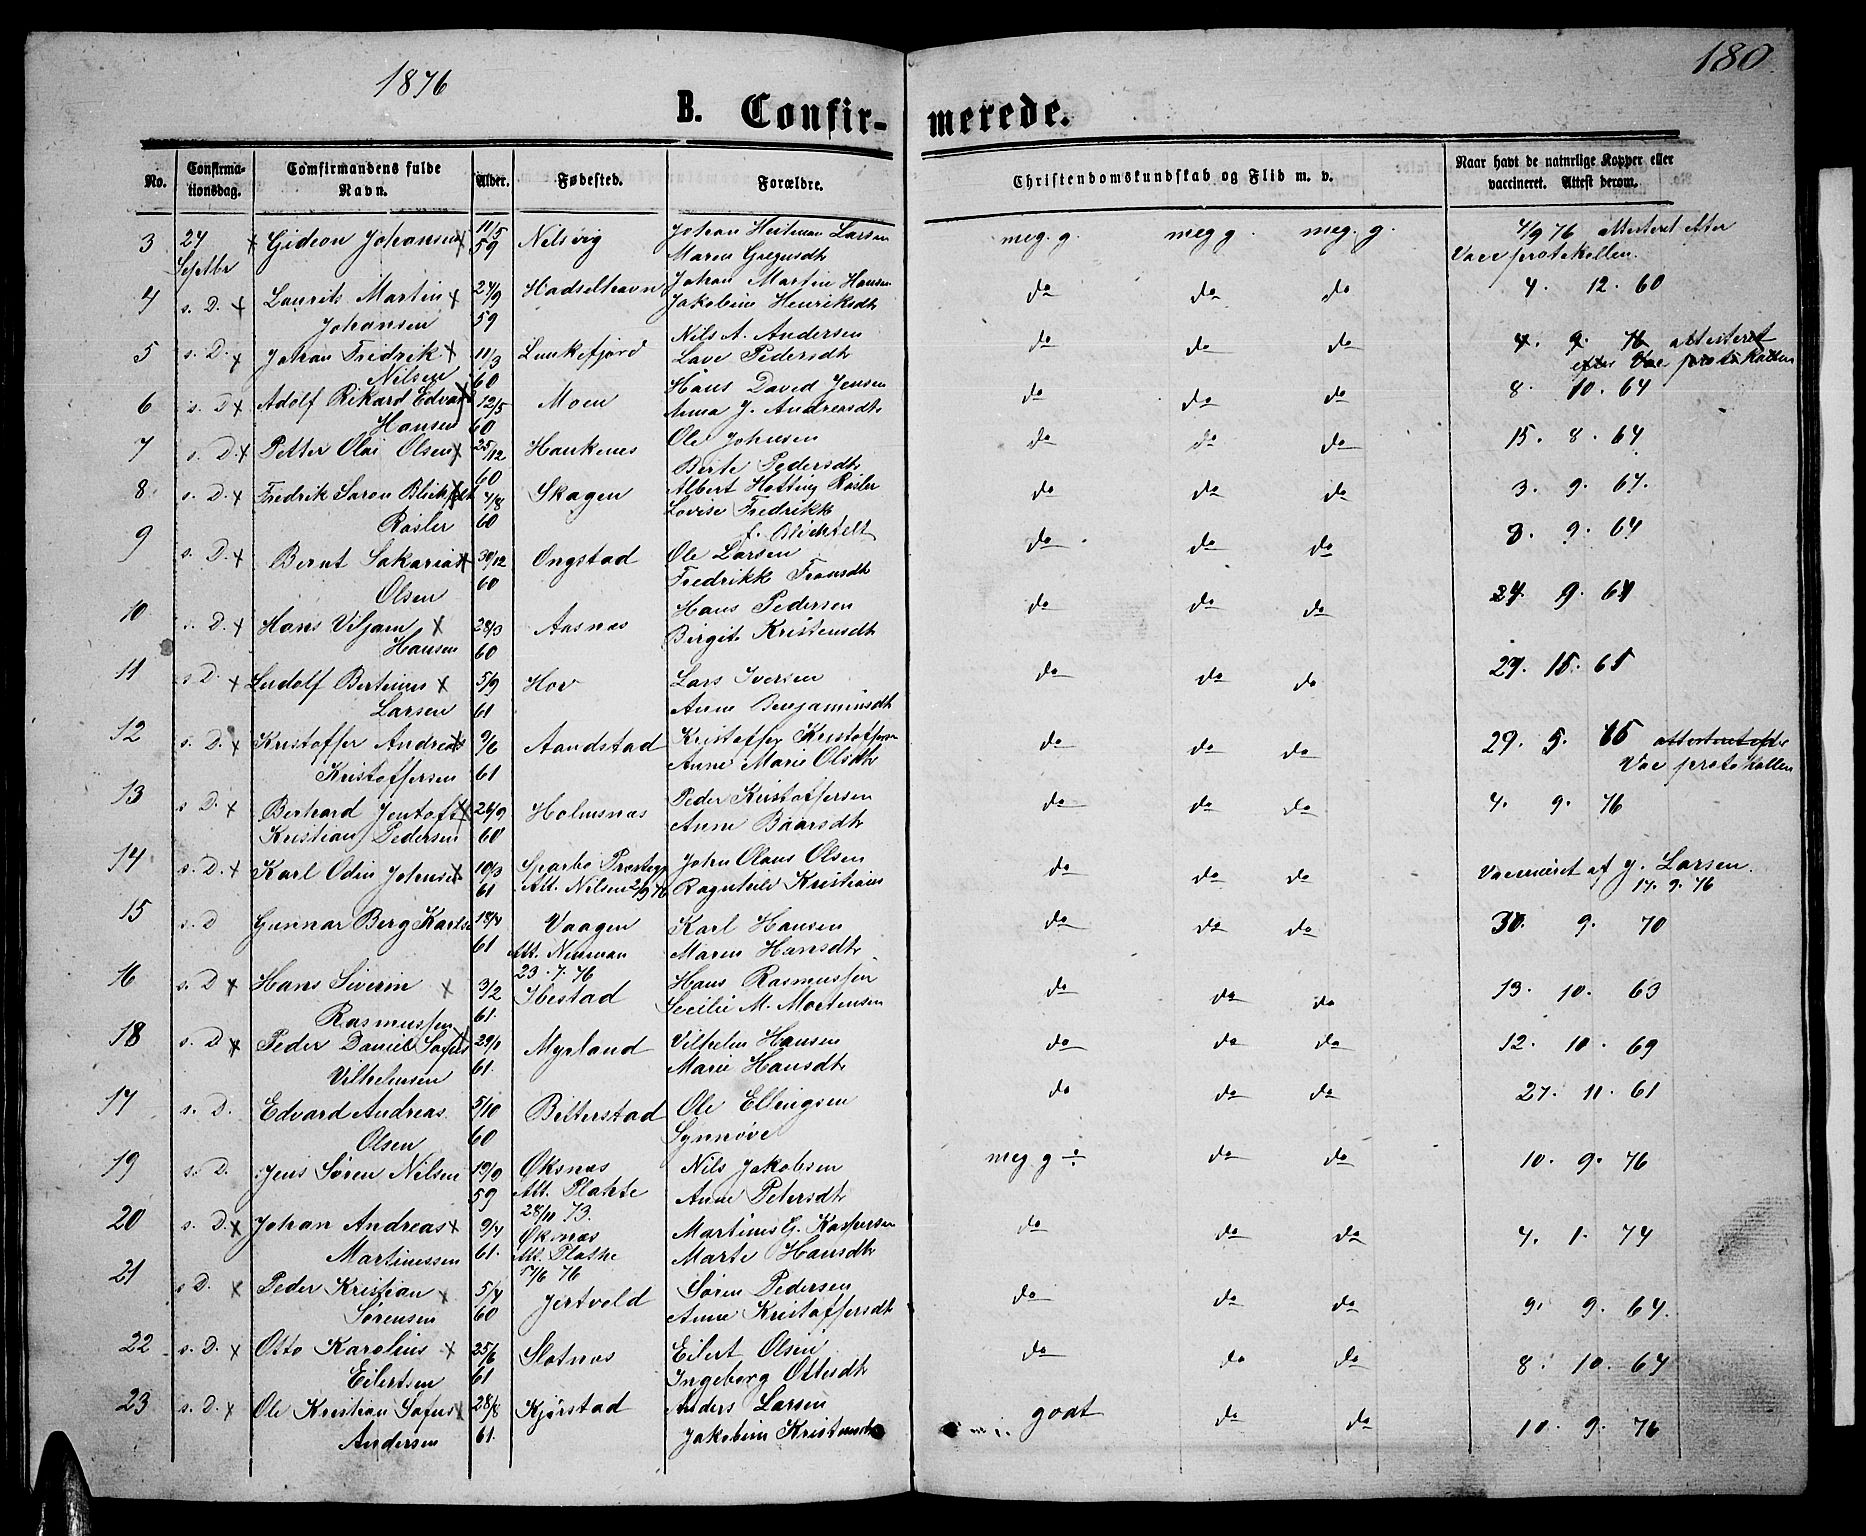 1876
180
B. Confir-
merede.
No.
Confirma-
tionsdag.
Comfirmandens fulde
Navn.
Alder.
Fødested.
Forældre.
Christendomskundskab og Flid m. v.
Naar havt de naturlige Kopper eller
vaccineret. Attest derom.
3 24 Septbr x Gideon Johansen x 11/5 59 Nilsvig Johan Heitman Larsen
Maren Gregusdtr
meg. g. meg g. meg. g. 4/9 76 attesteret efter
Vac protokollen.
4 s. D. x Laurits Martin x 24/9 59 Hadselhavn Johan Martin Hansen
Johansen Jakobine Henriksdtr
do do do 4. 12. 60
5 s. D. x Johan Fredrik x 11/3 60 Lunkefjord Nils A. Andersen
Nilsen Lave Pedersdtr
do do do 4. 9. 76 attesteret
efter Vac protokollen
6 s. D. x Adolf Rikard Edvard 12/5 60 Moen Hans David Jensen
Hansen Anna J. Andreasdtr
do do do 8 10. 64
7 s. D. x Petter Olai Olsen x 25/12 60 Haukenes Ole Johnsen
Berte Pedersdtr
do do do 15. 8. 64
8. s. D. x Fredrik Saron Blichfelt 4/8 60 Skagen Albert Hotting Røsler
Røsler Lovise Fredrikk
f. Blichfelt
do do do 3. 9. 67.
9 s. D. x Bernt Sakarias x 30/12 60 Ongstad Ole Larsen
Olsen Fredrikk Fransdtr
do do do 8. 9. 64
10 s. D. x Hans Viljam x 28/3 60 Aasnas Hans Pedersen
Hansen Birgit Kristensdtr
do do do 24. 9. 64
11 s D. x Ludolf Bertinus x 5/9 61 Hov Lars Iversen
Larsen Anne Benjaminsdtr
do do do 29. 15. 65
12 s. D. x Kristoffer Andreas 9/6 61 Aandstad Kristoffer Kristoffersen
Kristoffersen Anne Marie Olsdtr
do do do 29. 5. 65 attesteret efter
Vac protokollen
13 s D. x Berhard Jentoft x 26/9 60 Holmsnas Peder Kristoffersen
Kristian Pedersen Anne Baarsdtr
do do do 4. 9. 76
14 s. D. x Karl Odin Johnsen 10/3 61 Sparbo Præstegj John Olaus Olsen
Att. Nilsen 2/9 76 Ragnhild Kristians
do do do Vaccineret af J. Larsen.
17. 9. 76
15 s. D Gunnar Berg Karlsen 18/4 61 Vaagen Karl Hansen
Att. Neuman Maren Hansdtr
23. 7. 76
do do do 30. 9. 70
16 s. D x Hans Siverin x 3/2 61. Ibestad Hans Rasmussen
Rasmussen Secilie M. Mortensen
do do do 13. 10. 63
18 s. D x Peder Daniel Sofus 29/1 61. Myrland Vilhelm Hansen
Vilhelmsen Marie Hansdtr
do do do 12. 10. 69
17 s. D. Edvard Andreas 5/10 60 Bitterstad Ole Ellingsen
Olsen Synnøve
do do do 27. 11. 61
19 s. D. Jens Søren Nilsen 19/9 59 Øksnas Nils Jakobsen
Att. Plahte Anne Petersdtr
28/11 73.
meg. g ÷ do do 10. 9. 76
20 s. D. x Johan Andreas x 9/4 61. Øksnas Martinus G. Kaspersen
Martinussen Att. Plathe Marte Hansdtr
17/6 76
do do do 4. 1. 74
21 s D. x Peder Kristian x 5/4 60 Jertvold Søren Pedersen
Sørensen Anne Kristoffersdtr
do do do 9. 9. 64.
22 s. D. x Otto Karolius x 25/6 61 Slotnas Eilert Olsen
Eilertsen Ingeborg Ottesdtr
do do do 8. 10. 64
23 s. D. x Ole Kristian Sofus x 28/8 61. Kjørstad Anders Larsen
Andersen Jakobine Kristensdtr
godt do do 10. 9. 76